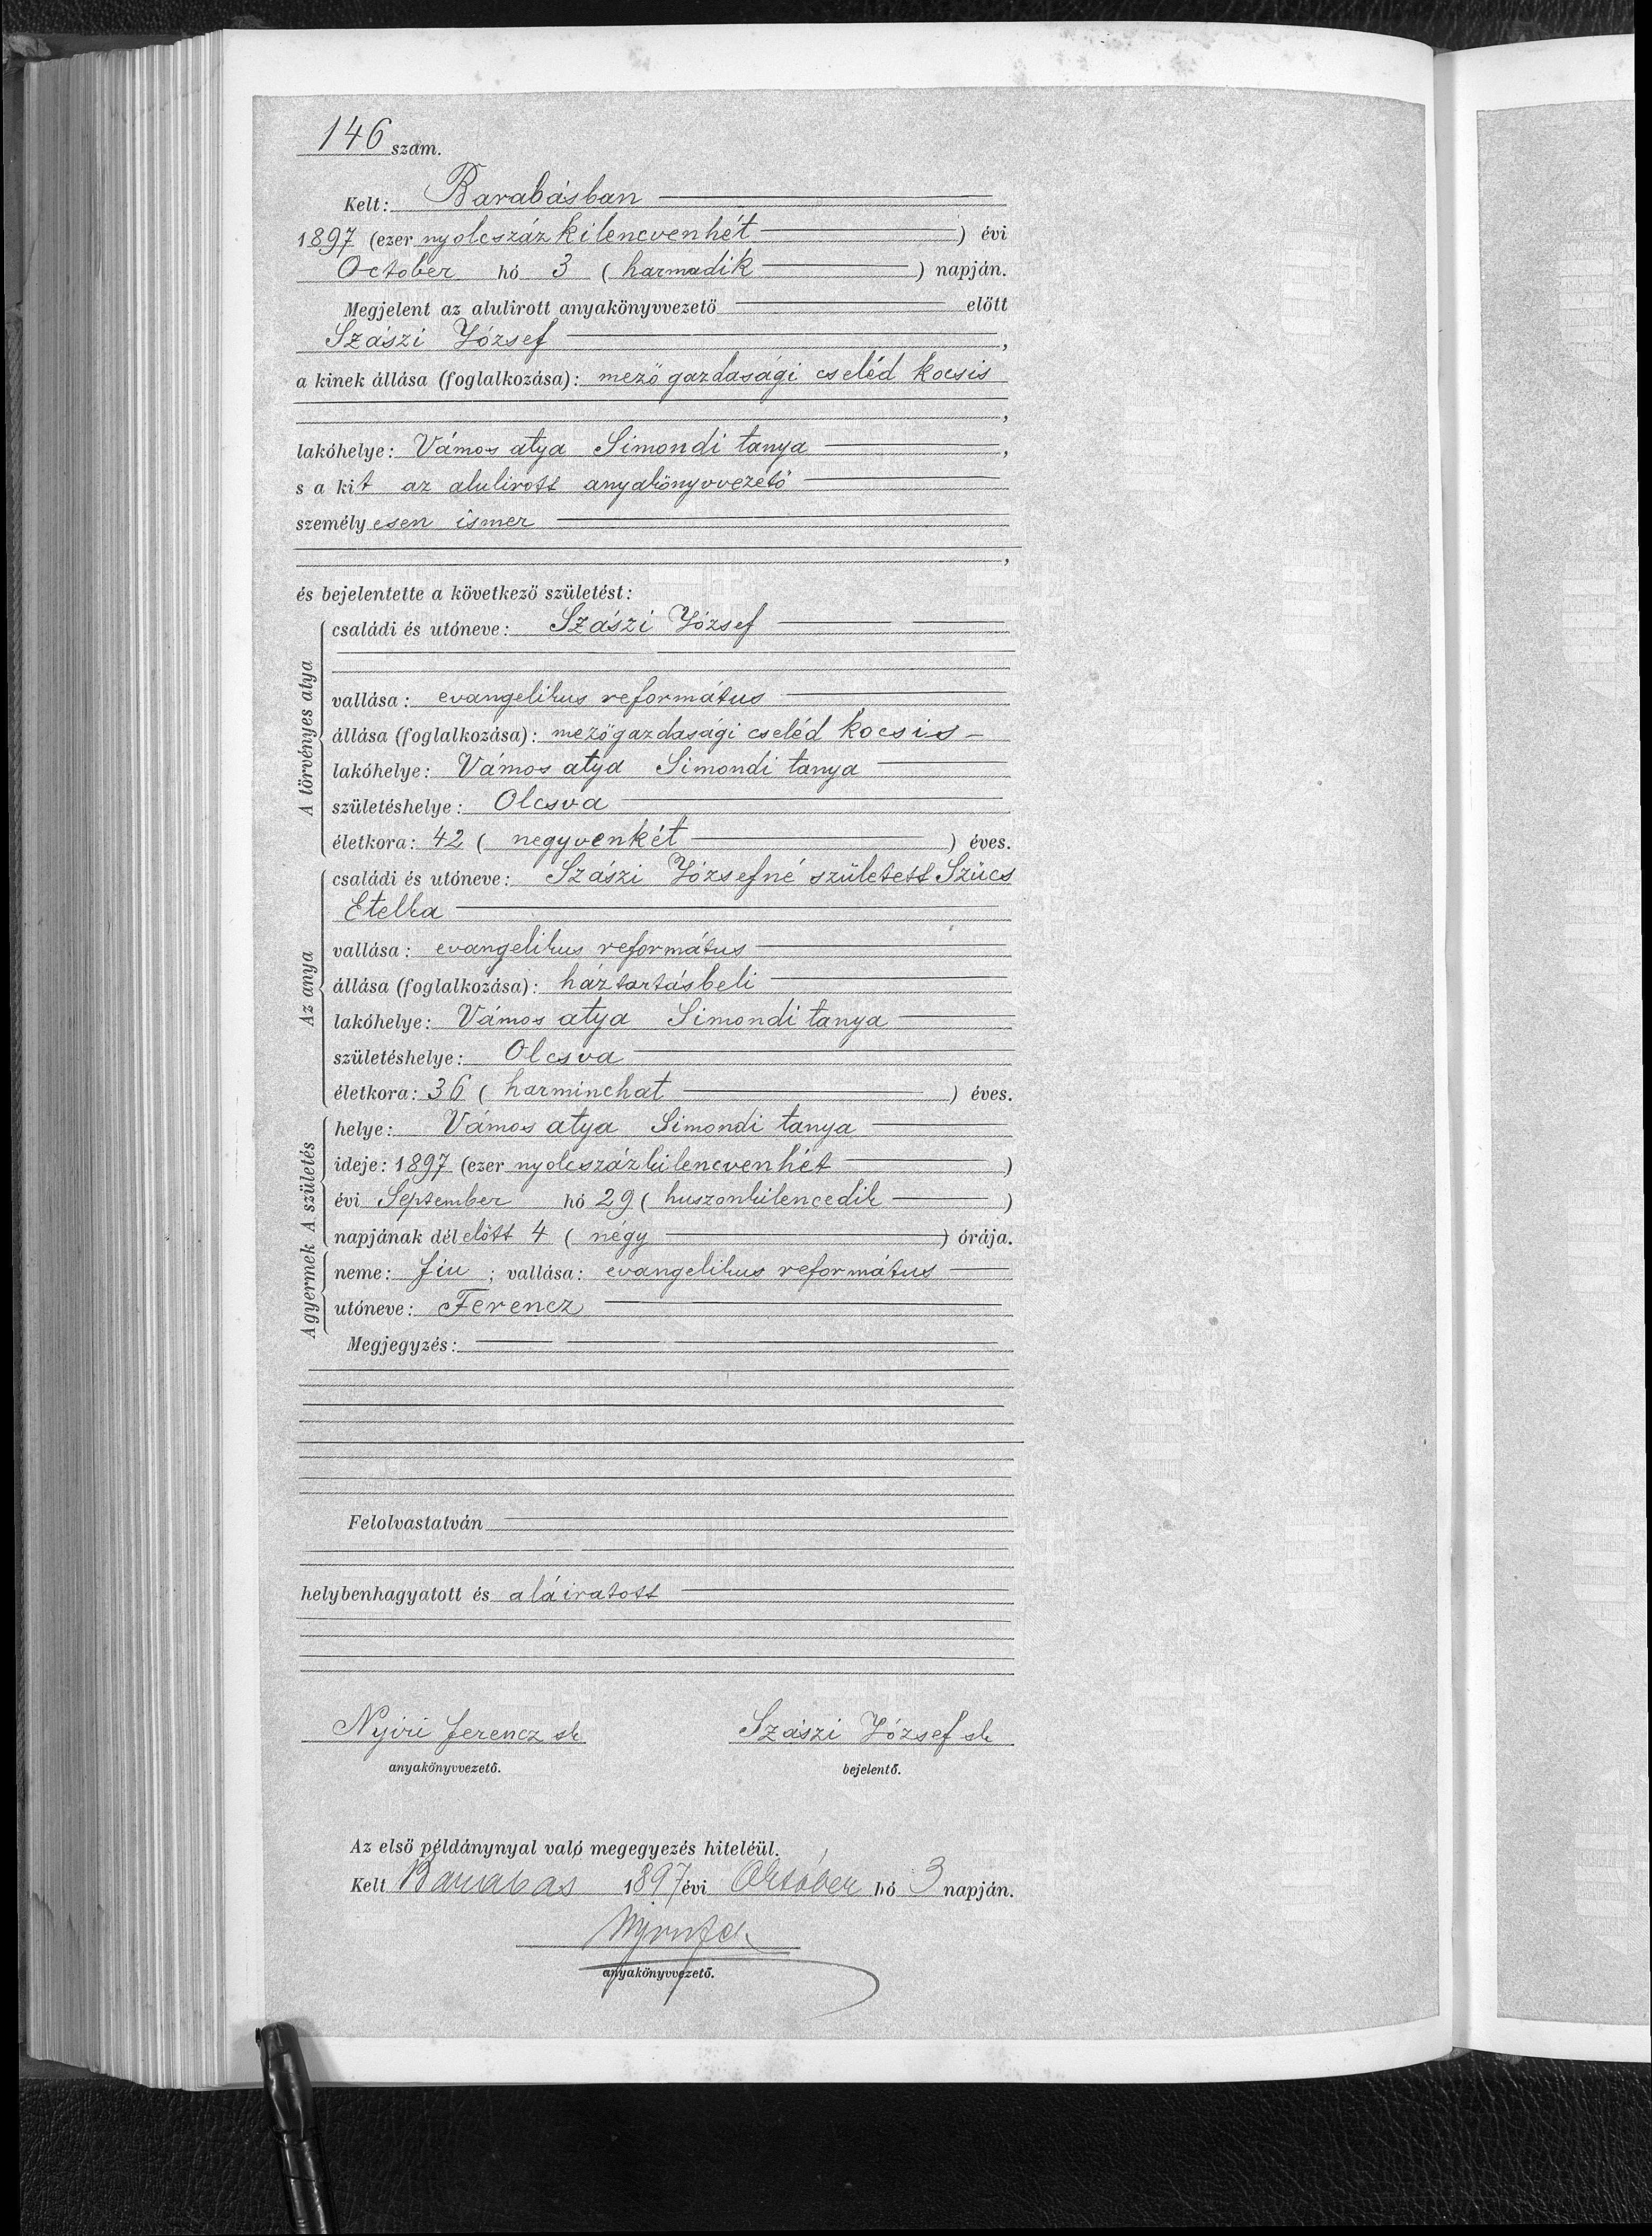 146 szám.
Kelt: Barabásban
1897 (ezer nyolcszáz kilencvenhét) évi
October hó 3 (harmadik) napján.
Megjelent az alulirott anyakönyvvezető előtt
Szászi József,
a kinek állása (foglalkozása): mező gazdasági cseléd kocsis
,
lakóhelye: Vámos atya Simondi tanya,
s a kit az alulirott anyakönyvvezető
személyesen ismer
,
és bejelentette a következő születést:
A törvényes atya
családi és utóneve: Szászi József
vallása: evangelikus református
állása (foglalkozása): mezőgazdasági cseléd kocsis
lakóhelye: Vámos atya Simondi tanya
születéshelye: Olcsva
életkora: 42 (negyvenkét) éves.
Az anya
családi és utóneve: Szászi Józsefné született Szücs
Etelka
vallása: evangelikus református
állása (foglalkozása): háztartásbeli
lakóhelye: Vámos atya Simondi tanya
születéshelye: Olcsva
életkora: 36 (harminchat) éves.
A születés
helye: Vámos atya Simondi tanya
ideje: 1897 (ezer nyolcszázkilencvenhét)
évi September hó 29 (huszonkilencedik)
napjának délelőtt 4 (négy) órája.
A gyermek
neme: fiu; vallása: evangelikus református
utóneve: Ferencz
Megjegyzés:
Felolvastatván
helybenhagyatott és aláiratott
Nyiri Ferencz sk
anyakönyvvezető.
Szászi József sk
bejelentő.
Az első példánynyal való megegyezés hiteléül.
Kelt Barabás 1897 évi Október hó 3 napján.
anyakönyvvezető.